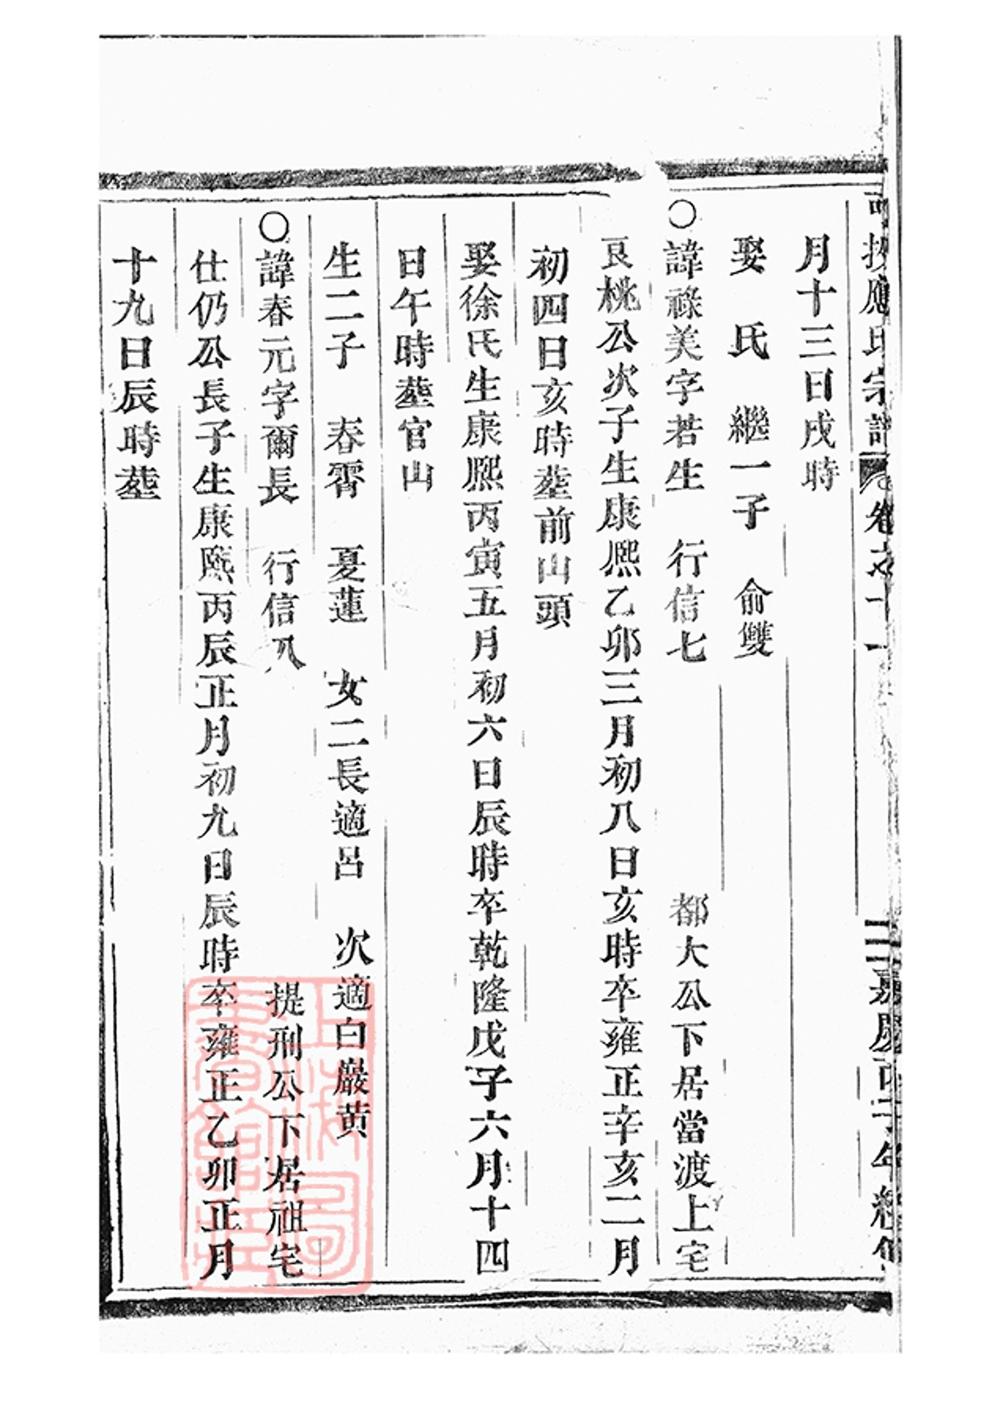 應氏宗譜 卷之十一 二 嘉慶丙子年
月十三日戌時
娶 氏 繼一子 俞雙
○諱祿美字若生 行信七 都大公下居當渡上宅
良桃公次子生康熈乙卯三月初八日亥時卒雍正辛亥二月
初四日亥時塟前山頭
娶徐氏生康熈丙寅五月初六日辰時卒乾隆戊子六月十四
日午時塟官山
生二子 春霄 夏蓮 女二長適呂 次適白巖黄
○諱春元字爾長 行信八 提刑公下居祖宅
仕仍公長子生康熈丙辰正月初九日辰時卒雍正乙卯正月
十九日辰時塟
上海圖書館藏